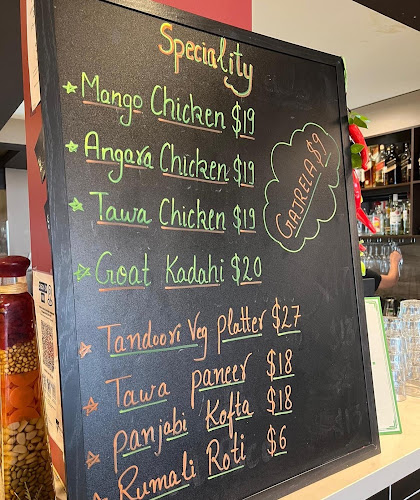 Speciality
Mango Chicken $19
Angara Chicken $19
Tawa Chicken $19
Goat Kadahi $20
GAJRELA $9
Tandoori Veg Platter $27
Tawa paneer $18
panjabi Kofta $18
Rumali Roti $6